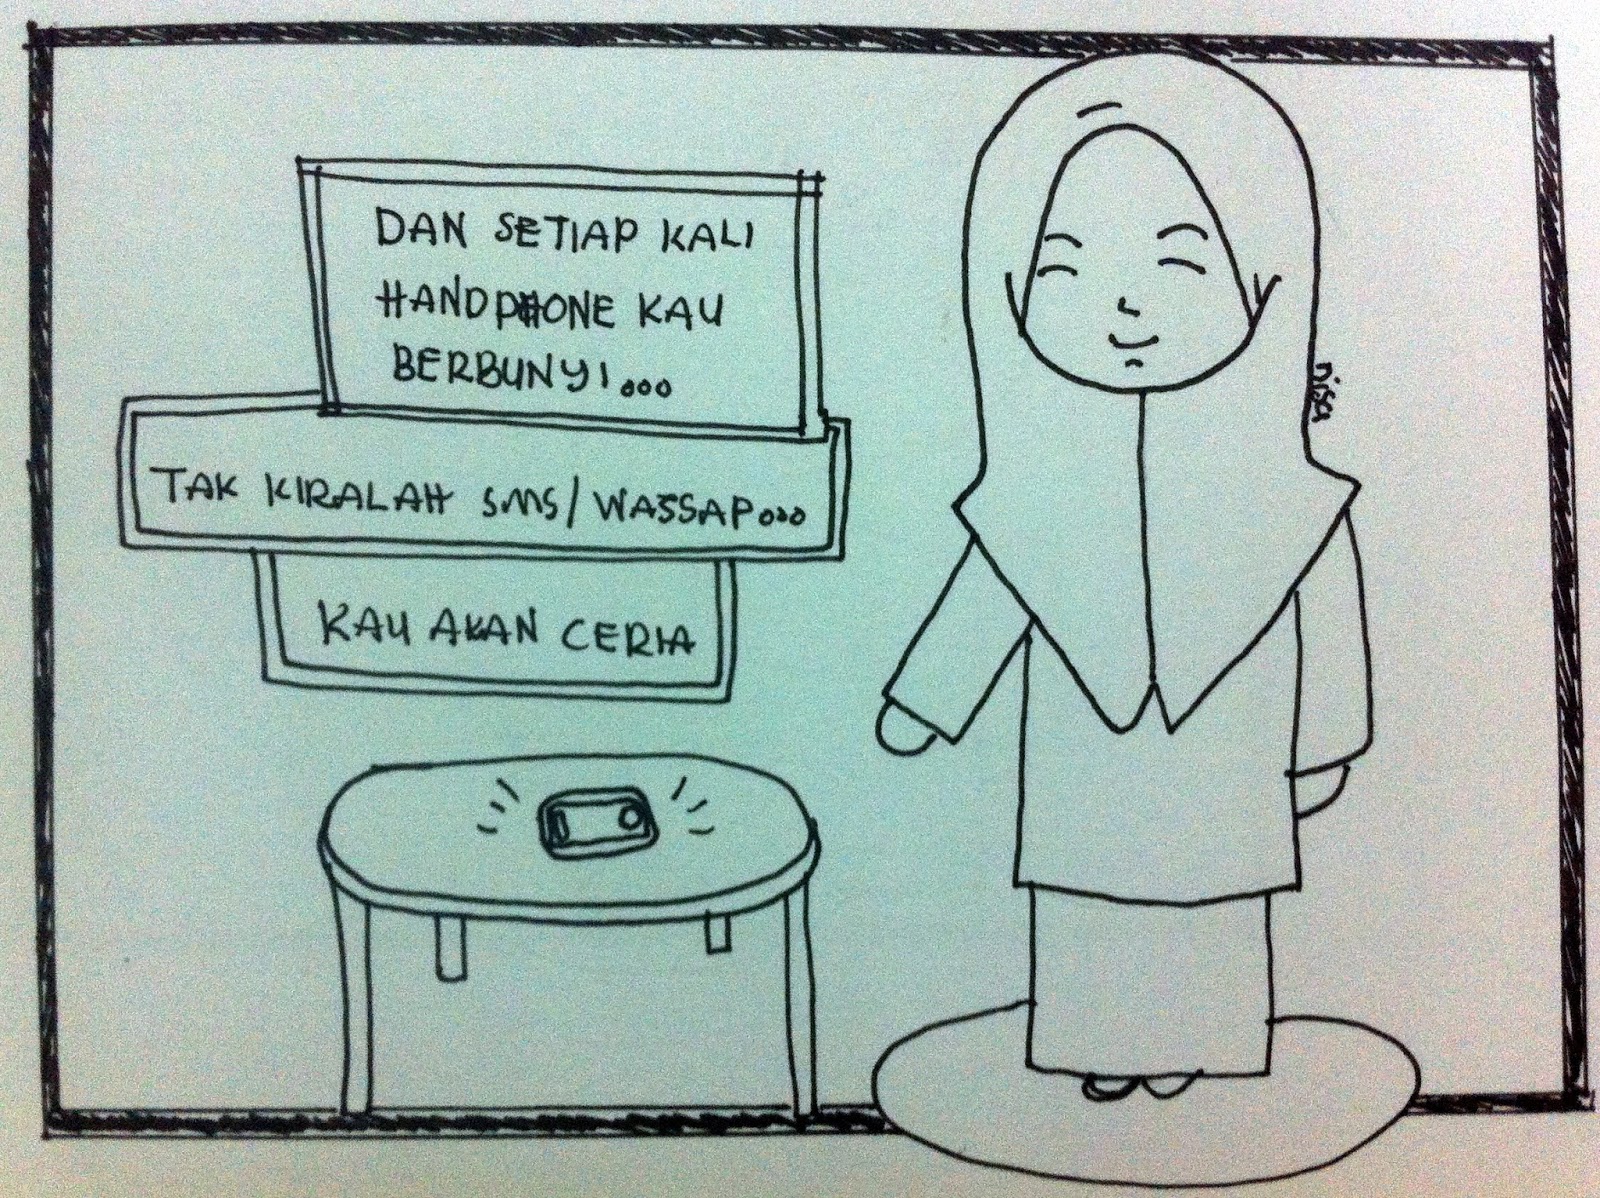 DAN SETIAP KALI
HANDPHONE KAU
BERBUNYI...
TAK KIRALAH SMS/WASSAP...
KAU AKAN CERIA
Disa